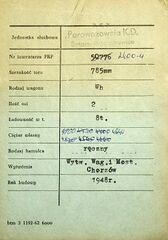 Jednostka służbowa Parowozownia K.D.
Nr inwentarza PKP 50776 2400-4
Szerokość toru 785mm
Rodzaj wagonu Wh
Ilość osi 2
Ładowność w t. 8t.
Ciężar własny
Rodzaj hamulca ręczny
Wytw. Wag. i Most.
Wytwórnia Chorzów
Rok budowy 1948r.